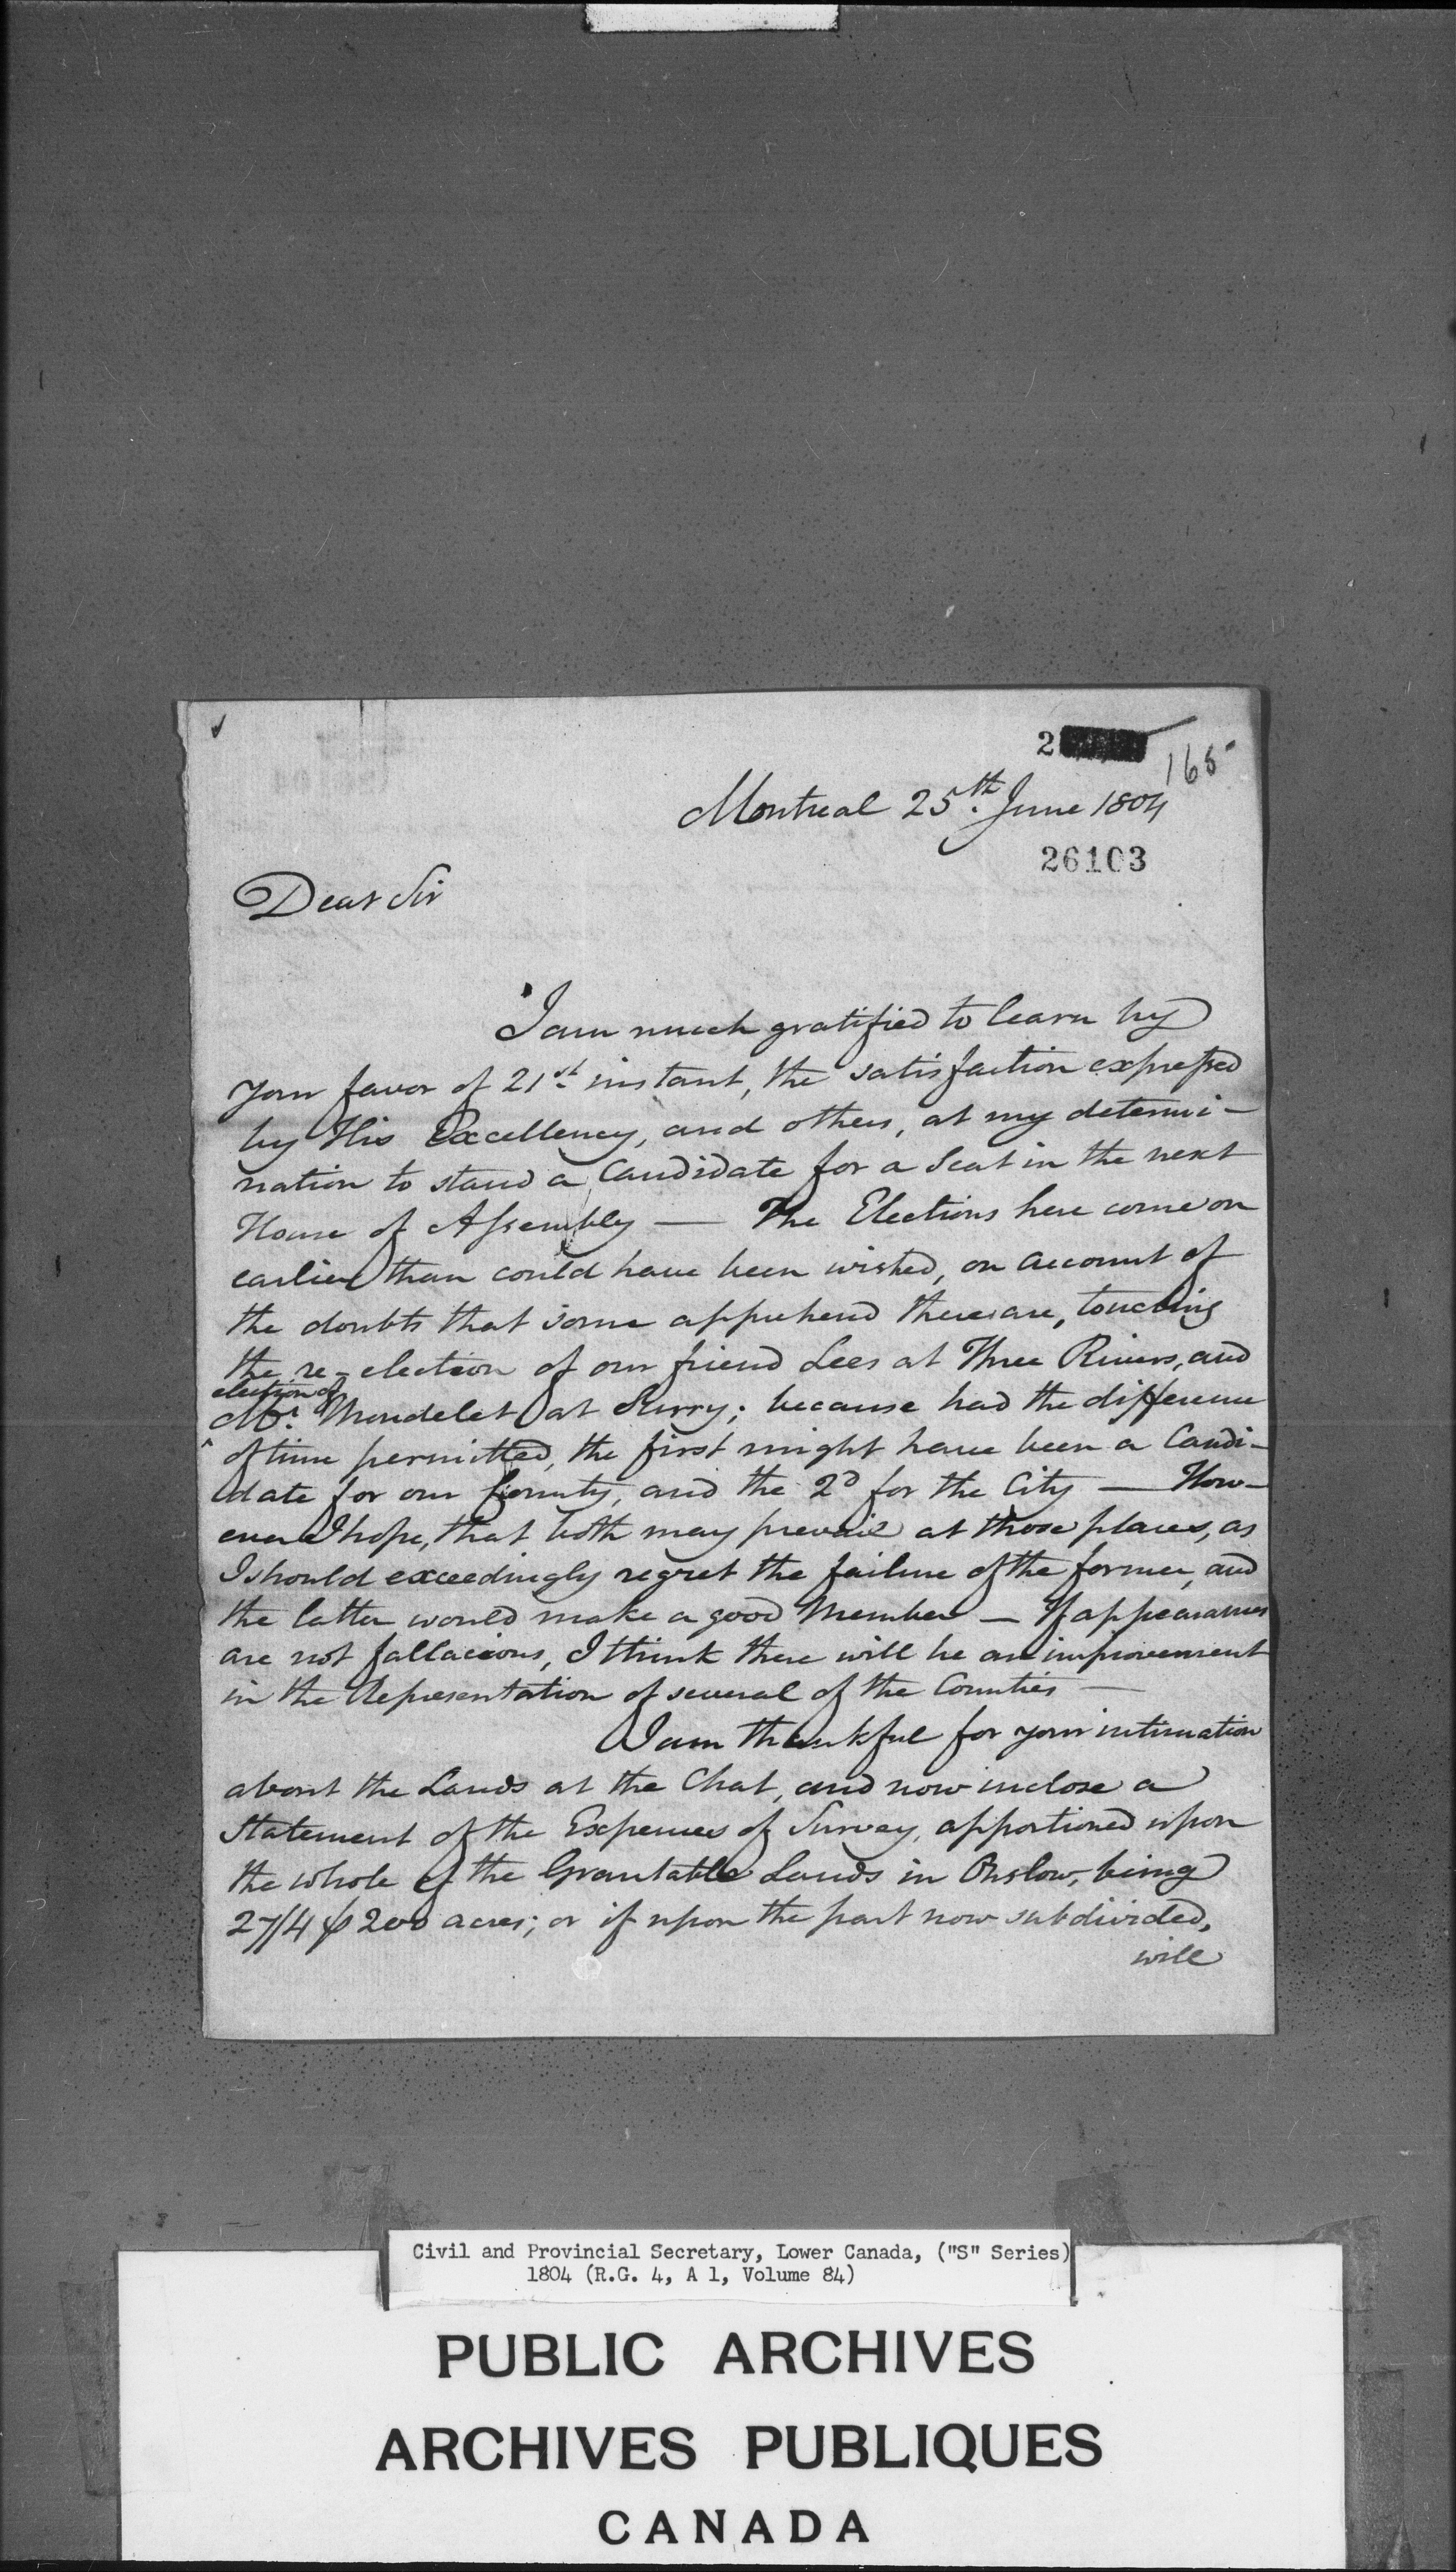 2
165
Montreal 25th. June 1804
26103
Dear Sir
I am much gratified to learn by
your favor of 21st instant, the satisfaction expressed
by His Excellency, and others, at my determi-
nation to stand a Candidate for a Seat in the next
House of Assembly — The Elections here come on
earlier than could have been wished, on account of
the doubts that some apprehend there are, touching
the re-election of our friend Lees at Three Rivers, and
election of
Mr. Mondelet at Surry; because had the difference
of time permitted, the first might have been a Candi-
date for our County, and the 2d for the City — How-
ever I hope, that both may prevail at those places, as
I should exceedingly regret the failure of the former, and
the latter would make a good Member — If appearances
are not fallacious, I think there will be an improvement
in the Representation of several of the Counties —
I am thankful for your intimation
about the Lands at the Chat, and now inclose a
Statement of the Expences of Survey, apportioned upon
the whole of the Grantable Lands in Onslow, being
27/4 ⅌ 200 acres; or if upon the part now subdivided,
will
Civil and Provincial Secretary, Lower Canada, ("S" Series)
1804 (R.G. 4, A 1, Volume 84)
PUBLIC ARCHIVES
ARCHIVES PUBLIQUES
CANADA